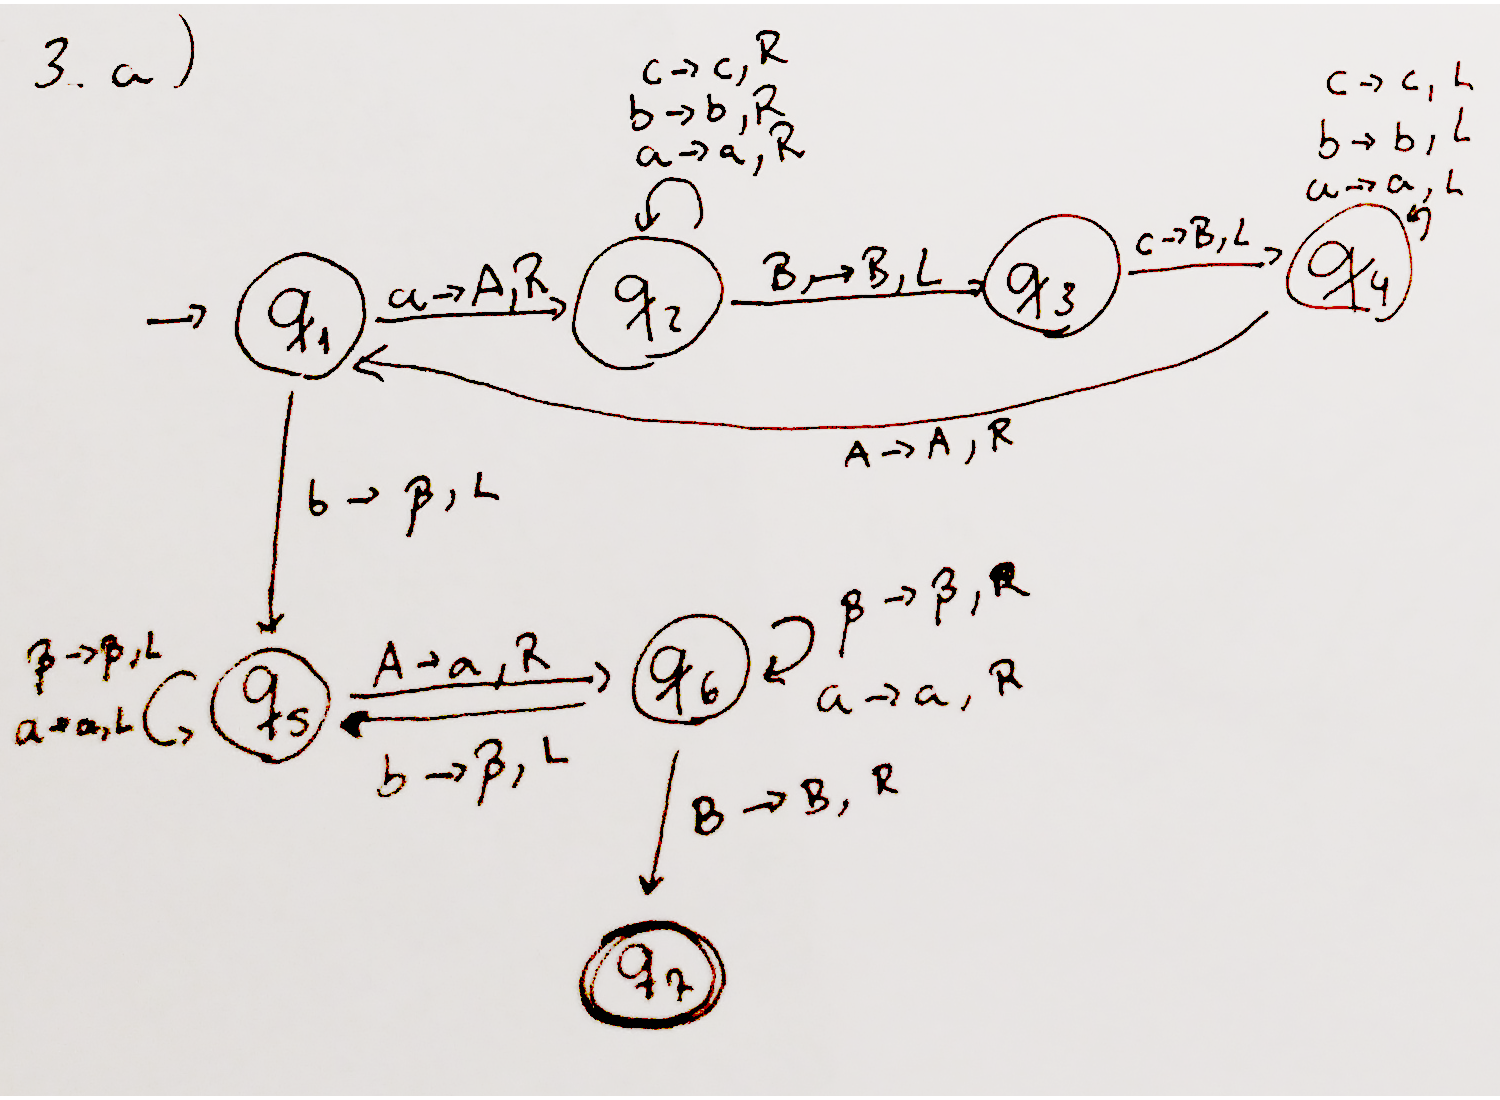 3. a)
c → c, R
b → b, R
a → a, R
c → c, L
b → b, L
a → a, L
q1
a → A, R
q2
B, → B, L
q3
c → B, L
q4
A → A, R
b → β, L
β → β, L
a → a, L
q5
A → a, R
b → β, L
q6
β → β, R
a → a, R
B → B, R
q7